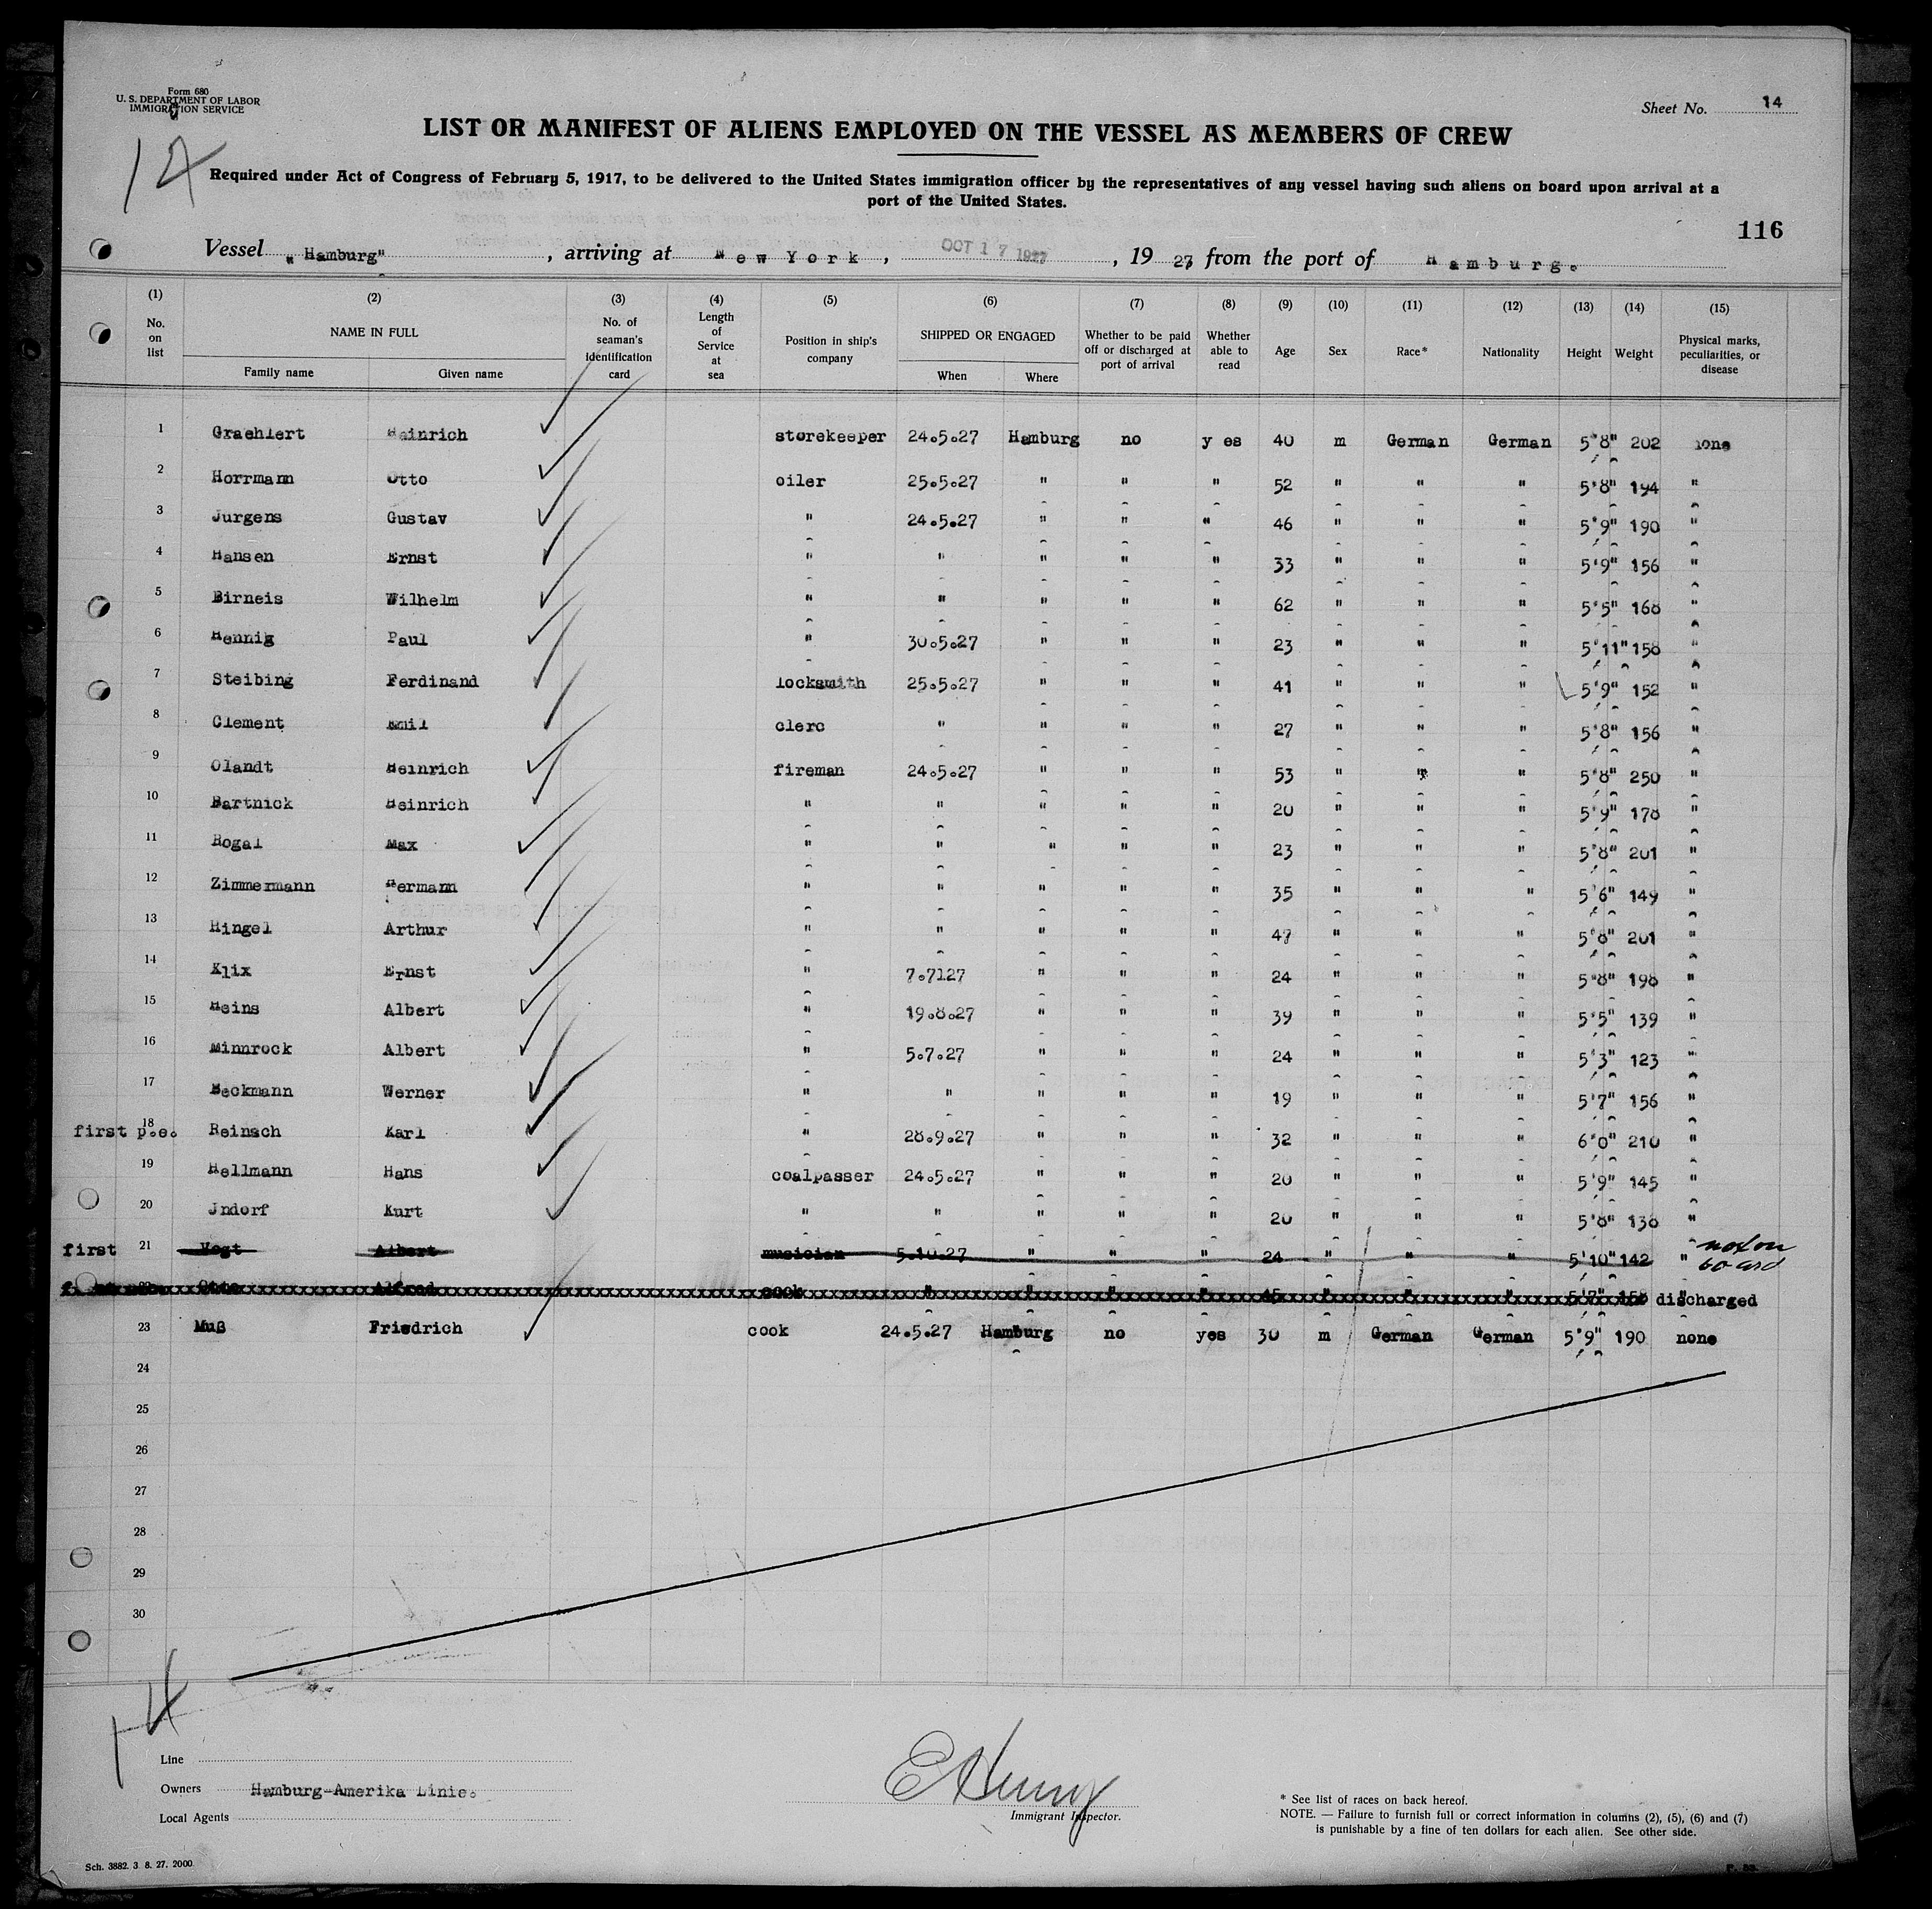 Form 680
U. S. DEPARTMENT OF LABOR
IMMIGRATION SERVICE
Sheet No. 14
LIST OR MANIFEST OF ALIENS EMPLOYED ON THE VESSEL AS MEMBERS OF CREW
14
Required under Act of Congress of February 5, 1917, to be delivered to the United States immigration officer by the representatives of any vessel having such aliens on board upon arrival at a
port of the United States.
116
Vessel "Hamburg", arriving at New York, OCT 17 1927, 19 27 from the port of Hamburg.
(1) (2) (3) (4) (5) (6) (7) (8) (9) (10) (11) (12) (13) (14) (15)
No. on list NAME IN FULL Family name Given name No. of seaman's identification card Length of Service at sea Position in ship's company SHIPPED OR ENGAGED When Where Whether to be paid off or discharged at port of arrival Whether able to read Age Sex Race* Nationality Height Weight Physical marks, peculiarities, or disease
1 Graehlert Heinrich storekeeper 24.5.27 Hamburg no y es 40 m German German 5'8" 202 none
2 Horrmann Otto oiler 25.5.27 " " " 52 " " " 5'8" 194 "
3 Jurgens Gustav " 24.5.27 " " " 46 " " " 5'9" 190 "
4 Hansen Ernst " " " " " 33 " " " 5'9" 156 "
5 Birneis Wilhelm " " " " " 62 " " " 5'5" 168 "
6 Hennig Paul " 30.5.27 " " " 23 " " " 5'11" 158 "
7 Steibing Ferdinand locksmith 25.5.27 " " " 41 " " " 5'9" 152 "
8 Clement Emil clerc " " " " 27 " " " 5'8" 156 "
9 Olandt Heinrich fireman 24.5.27 " " " 53 " " " 5'8" 250 "
10 Bartnick Heinrich " " " " " 20 " " " 5'9" 178 "
11 Rogal Max " " " " " 23 " " " 5'8" 201 "
12 Zimmermann Hermann " " " " " 35 " " " 5'6" 149 "
13 Hingel Arthur " " " " " 47 " " " 5'8" 201 "
14 Klix Ernst " 7.7127 " " " 24 " " " 5'8" 198 "
15 Heins Albert " 19.8.27 " " " 39 " " " 5'5" 139 "
16 Minnrock Albert " 5.7.27 " " " 24 " " " 5'3" 123 "
17 Beckmann Werner " " " " " 19 " " " 5'7" 156 "
first p.e. 18 Reinsch Karl " 28.9.27 " " " 32 " " " 6'0" 210 "
19 Hellmann Hans coalpasser 24.5.27 " " " 20 " " " 5'9" 145 "
20 Jndorf Kurt " " " " " 20 " " " 5'8" 138 "
first 21 Vogt Albert musician 5.10.27 " " " 24 " " " 5'10" 142 " not on board
22 Otto Alfred cook " " " " 45 " " " 5'7" " discharged
23 Muß Friedrich cook 24.5.27 Hamburg no yes 30 m German German 5'9" 190 none
24
25
26
27
28
29
30
14
Line
Owners Hamburg-Amerika Linie.
Local Agents
E Henry
Immigrant Inspector.
* See list of races on back hereof.
NOTE. — Failure to furnish full or correct information in columns (2), (5), (6) and (7)
is punishable by a fine of ten dollars for each alien. See other side.
Sch. 3882. 3 8. 27. 2000